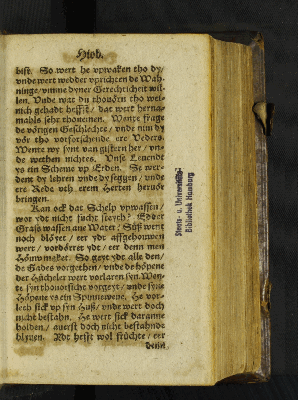 Hiob.
bist. So wert he vpwaken tho dy/
vnde wert wedder vprichten de Wah-
ninge/ vmme dyner Gerechticheit wil-
len. Vnde wat du thouörn tho wei-
nich gehadt heffst/ dat wert herna-
mahls sehr thonemen. Wente frage
de vörigen Geschlechte/ vnde nim dy
vör tho vorforschende ere Veders.
Wente wy synt van gistern her/ vn-
de wethen nichtes. Vnse Leuendt
ys ein Schem vp Erden. Se wer-
den dy lehren vnde dy seggen/ vnde
ere Rede vth erem Herten heruör
bringen.
Kan ock dat Schelp vpwassen/
wor ydt nicht fucht steyt? Edder
Graß wassen ane Water? Süß went
noch blöyet/ eer ydt affgehouwen
wert/ vordörret ydt/ eer denn men
Höuw maket. So geyt ydt alle den/
de Gades vorgethen/ vnde de höpene
der Hüchler wert vorlaren syn. Wen-
te syn thouorsicht vorgeyt/ vnde syne
Höpene ys ein Spinnewewe. He vor-
leth sick vp syn Huß/ vnde wert doch
nicht bestahn. He wert sick daranne
holden/ auerst doch nicht bestahnde
blyuen. Ydt hefft wol früchte/ eer
denn
Staats- u. Universitäts-
Bibliothek Hamburg